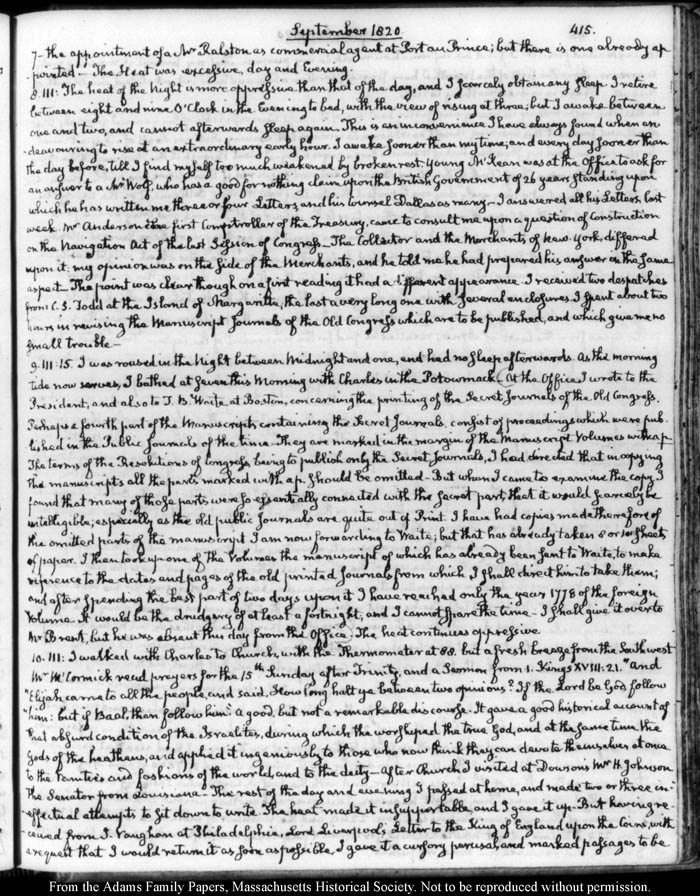 September 1820. 415.
7- the appointment of a Mr Ralston as commercial agent at Port au Prince; but there is one already ap
pointed- The Heat was excessive, day and Evening.
8. III. The heat of the Night is more oppressive than that of the day, and I scarcely obtain any sleep. I retire
between eight and nine O'Clock in the Evening to bed, with the view of rising at three; but I awake between
one and two, and cannot afterwards sleep again. This is an inconvenience I have always found when en-
deavouring to rise at an extraordinary early hour. I awake sooner than my time; and every day sooner than
the day before, till I find myself too much weakened by broken rest. Young McKean was at the Office to ask for
an answer to a Mr Wolf, who has a good for nothing claim upon the British Government of 26 years standing upon
which he has written me three or four Letters, and his Counsel Dallas as many- I answered all his Letters, last
week. Mr Anderson the first Comptroller of the Treasury, came to consult me upon a question of Construction
on the Navigation Act of the last Session of Congress- The Collector and the Merchants of New-York, differed
upon it; my opinion was on the side of the Merchants, and he told me he had prepared his answer in the same
aspect. The point was clear though on a first reading it had a different appearance. I received two despatches
from C. S. Todd at the Island of Margaritta; the last a very long one with several enclosures. I spent about two
hours in revising the Manuscript Journals of the Old Congress which are to be published, and which give me no
small trouble-
9. III. 15. I was roused in the Night between Midnight and one, and had no sleep afterwards. As the morning
tide now serves, I bathed at seven this Morning with Charles in the Potowmack. At the Office I wrote to the
President, and also to T. B. Waite at Boston, concerning the printing of the Secret Journals of the Old Congress.
Perhaps a fourth part of the Manuscripts containing the Secret Journals, consist of proceedings which were pub-
lished in the Public Journals of the time- They are marked in the margin of the Manuscript Volumes with a p.
The terms of the Resolutions of Congress, being to publish only the Secret Journals, I had directed that in copying
the manuscripts all the parts marked with a p. should be omitted- But when I came to examine the copy I
found that many of those parts were so essentially connected with the secret part, that it would scarcely be
intelligible; especially as the old public Journals are quite out of Print. I have had copies made therefore of
the omitted parts of the manuscript I am now forwarding to Waite; but that has already taken 8 or 10 sheets
of paper. I then took up one of the Volumes the manuscript of which has already been sent to Waite, to make
reference to the dates and pages of the old printed Journals from which I shall direct him to take them;
and after spending the best part of two days upon it I have reached only the year 1778 of the foreign
Volume. It would be the drudgery of at least a fortnight, and I cannot spare the time- I shall give it over to
Mr Brent; but he was absent this day from the Office. The heat continues oppressive.
10. III: I walked with Charles to Church, with the Thermometer at 88. but a fresh breeze from the Southwest
Mr McCormick read prayers for the 15th Sunday after Trinity, and a Sermon from 1. Kings XVIII: 21. "And
"Elijah came to all the people, and said, How long halt ye between two opinions? If the Lord be God, follow
"him: but if Baal, then follow him." a good, but not a remarkable discourse. It gave a good historical account of
that absurd condition of the Israelites, during which they worshipped the true God, and at the same time the
Gods of the heathens, and applied it ingeniously to those who now think they can devote themselves at once
to the Vanities and fashions of the world, and to the deity- After Church I visited at Dowson's Mr H. Johnson
the Senator from Louisiana- The rest of the day and evening I passed at home, and made two or three in-
effectual attempts to sit down to write. The heat made it insupportable, and I gave it up. But having re-
ceived from J. Vaughan at Philadelphia, Lord Liverpool's Letter to the King of England upon the Coins, with
a request that I would return it as soon as possible, I gave it a cursory perusal, and marked passages to be
From the Adams Family Papers, Massachusetts Historical Society. Not to be reproduced without permission.